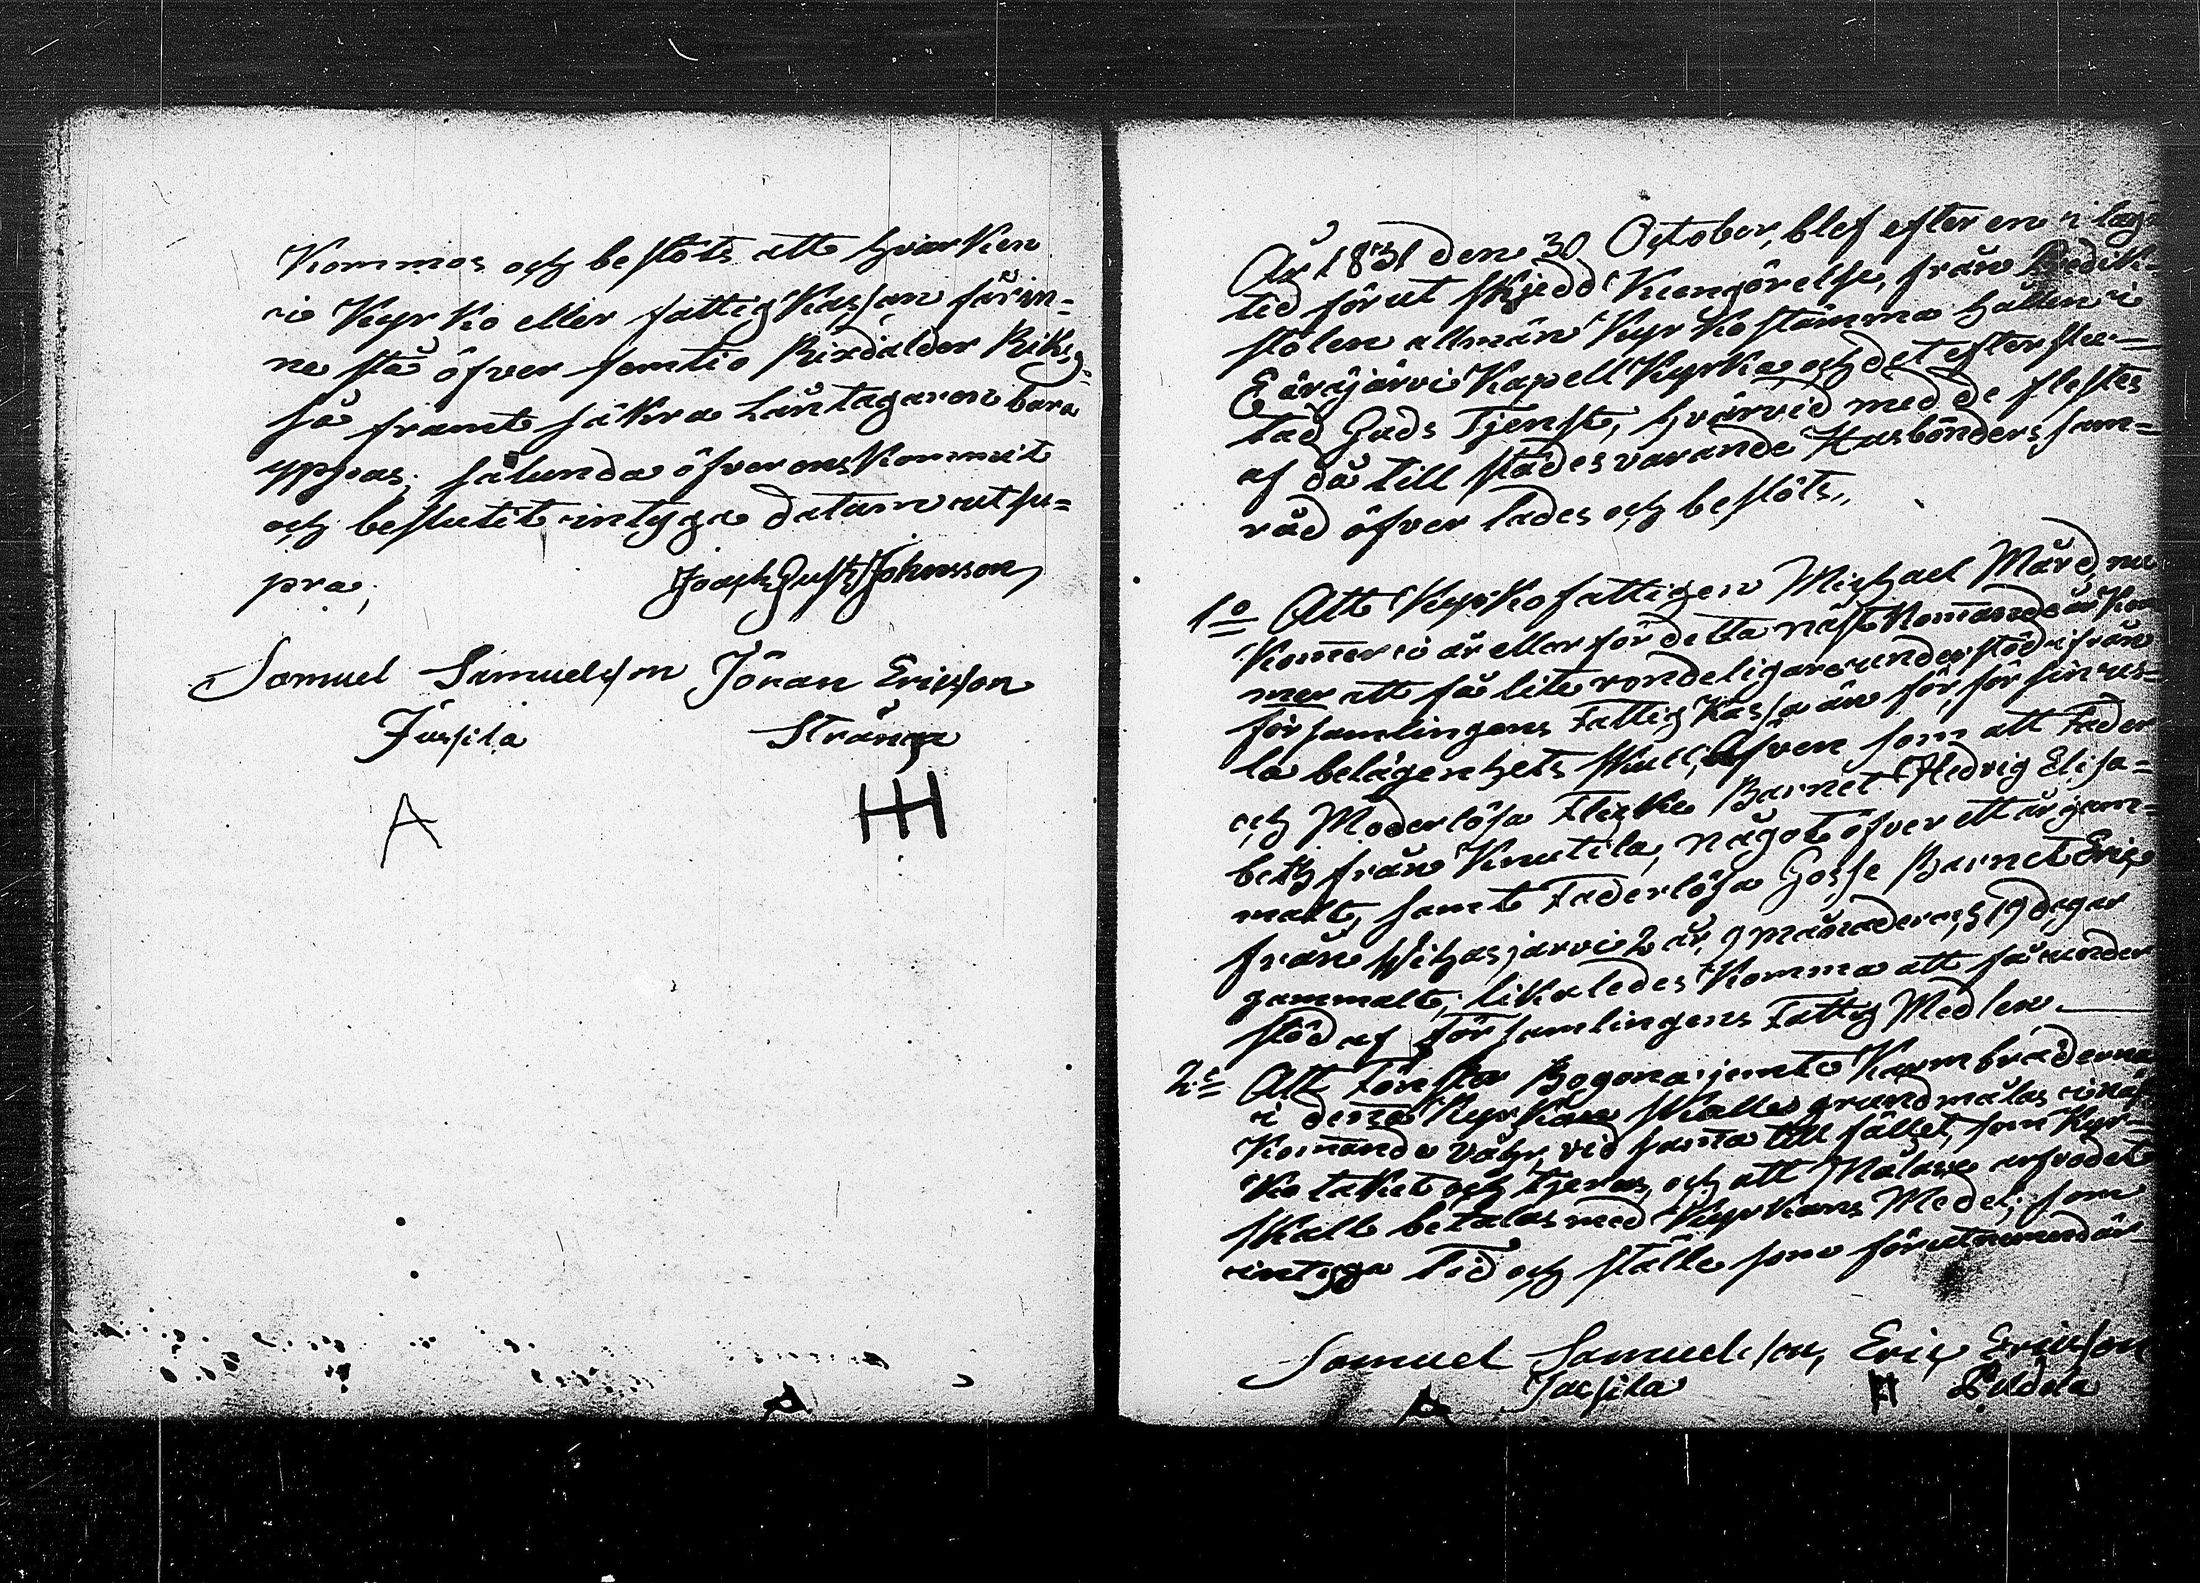 Kommos och beslöts att hvarken
i Kyrko eller fattig Kassan får in=
ne stå öfver femtio Rixdalder Riksg:
så framt säkra Låntagaren bara
yppas; sålunda öfverenskommit
och beslutit intyga datum utsu=
pra,
Joach Gust Johnsson,
Samuel Samuelsson Jöran Ericsson
Jussila Strånga
A
År 1831 den 30 October, blef efter en i laga
tid förut skjedd Kungörelse, från Predik=
stolen allmän Kyrkostämma hållen i
Eäräjärvi Kapell Kyrka och det efter slu=
tad Guds Tjenst, hvarvid med de flestes
af då till städes varande Husbönders sam=
råd öfver lades och beslöts,,
1o Att Kyrkofattigen Michael Mård, nu
Kom̄er i år eller för detta näst Kom̄ande år Kom
mer att få lite rondeligare understöd ifrån
församlingens Fattig Kassa än för, för sin us=
la belägenhets skull; Äfven som att Fader
och Moderlösa Flicke Barnet Hedrig Elisa=
beth från Knutila, något öfver ett år gam=
malt, samt Faderlösa Gosse Barnet Eric
från Wihasjarvi 2 år, 9 månader och 19 dagar
gammalt, likaledes Komma att få under
stöd af Församlingens Fattig Medlen
2o Att Fönster Bogona jemte Karmbräderna
i den̄a Kyrka skalle grundmålas i näst
Kom̄ande vahr, vid sam̄a till fället, som Kyr=
ko taket och tjeras, och att Målare arfvodet
skall betalas med Kyrkans Medel; som
intyga Tid och ställe som förutnemndt är
Samuel Samuelsson, Eric Ericsson
Jussila